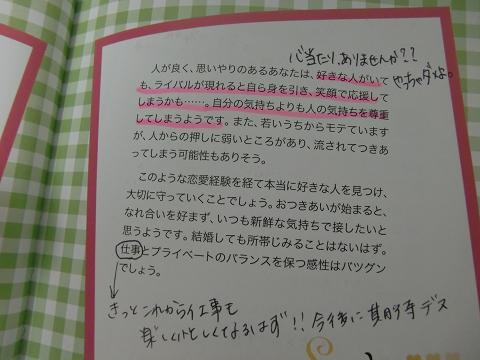 心当たり、ありませんか??
やっちゃダメよ。
人が良く、思いやりのあるあなたは、好きな人がいて
も、ライバルが現れると自ら身を引き、笑顔で応援して
しまうかも……。自分の気持ちよりも人の気持ちを尊重
してしまうようです。また、若いうちからモテています
が、人からの押しに弱いところがあり、流されてつきあ
ってしまう可能性もありそう。
このような恋愛経験を経て本当に好きな人を見つけ、
大切に守っていくことでしょう。おつきあいが始まると、
なれ合いを好まず、いつも新鮮な気持ちで接したいと
思うようです。結婚しても所帯じみることはないはず。
仕事とプライベートのバランスを保つ感性はバツグン
でしょう。
きっとこれから仕事も
楽しいトしくなるはず!!今後に期待デス